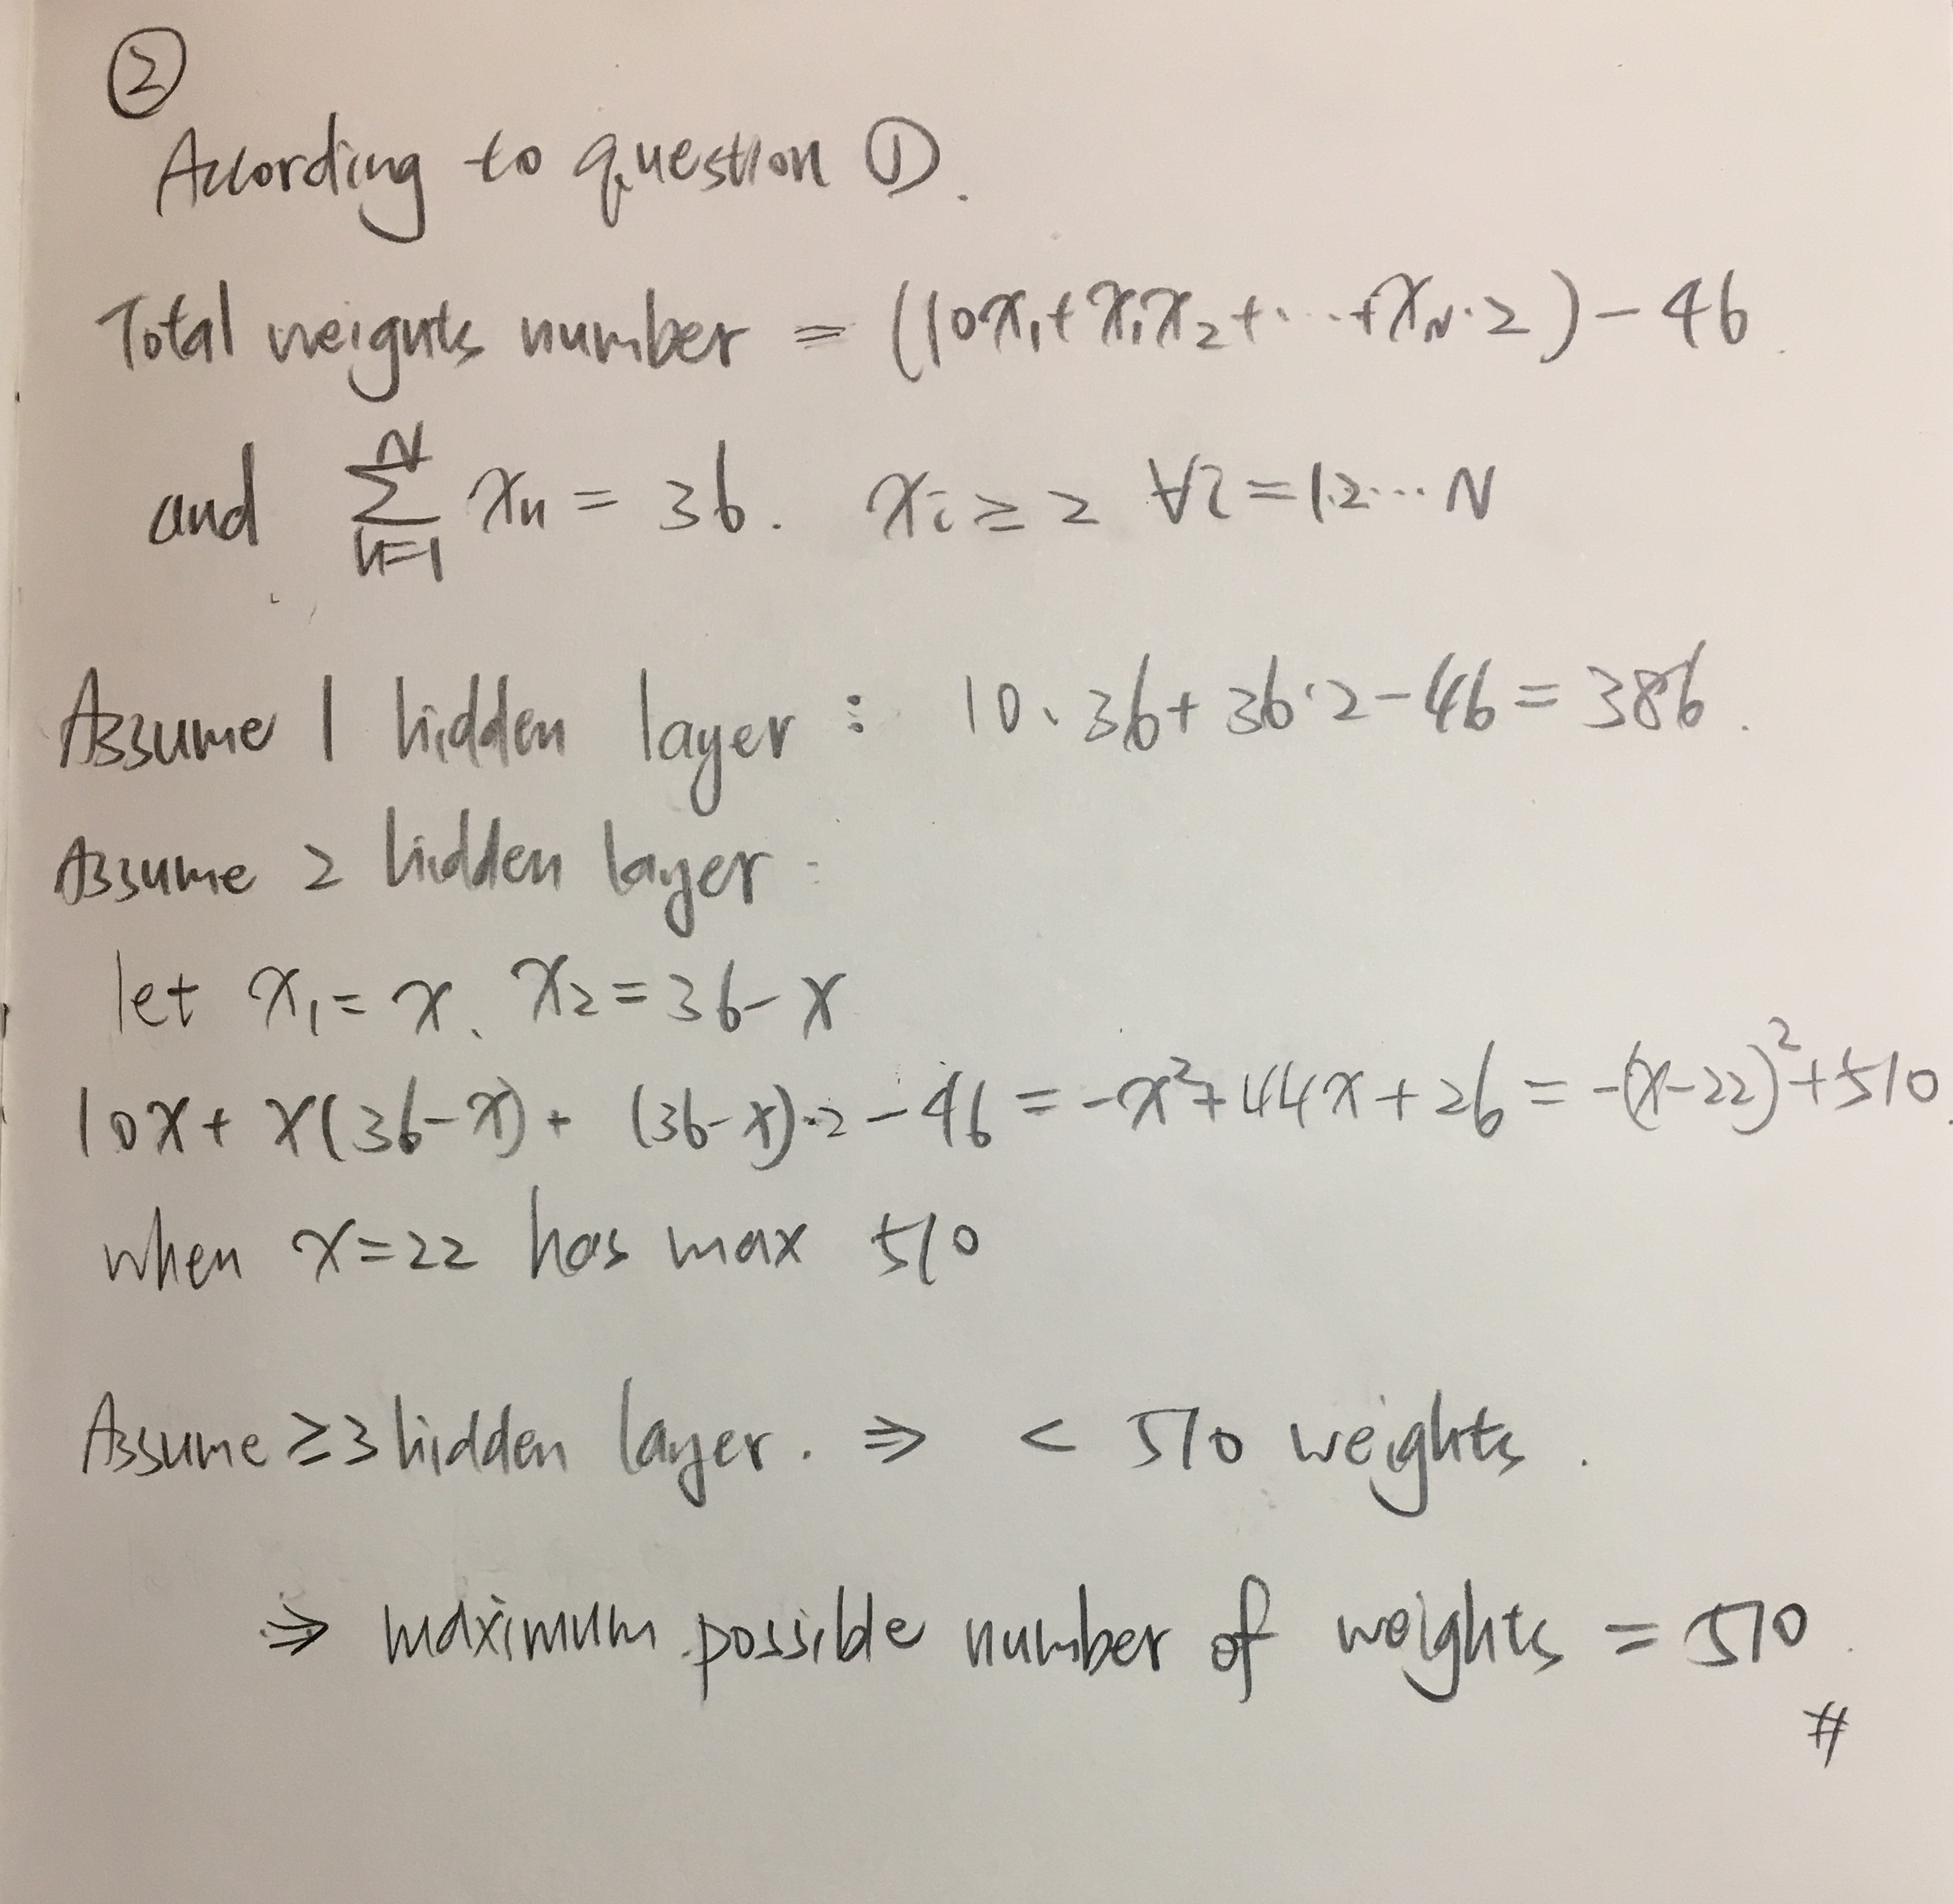 ②
According to question ①.
Total weights number = (10x₁+x₁x₂+...+x_N·2)-46.
and ∑_{n=1}^{N} x_n = 36. x_i ≥ 2 ∀i=1.2...N
Assume 1 hidden layer : 10·36+36·2-46=386.
Assume 2 hidden layer :
let x₁=x. x₂=36-x
10x+x(36-x)+(36-x)·2-46=-x²+44x+26=-(x-22)²+510.
when x=22 has max 510
Assume ≥3 hidden layer. ⇒ < 510 weights.
⇒ maximum possible number of weights = 510.
#